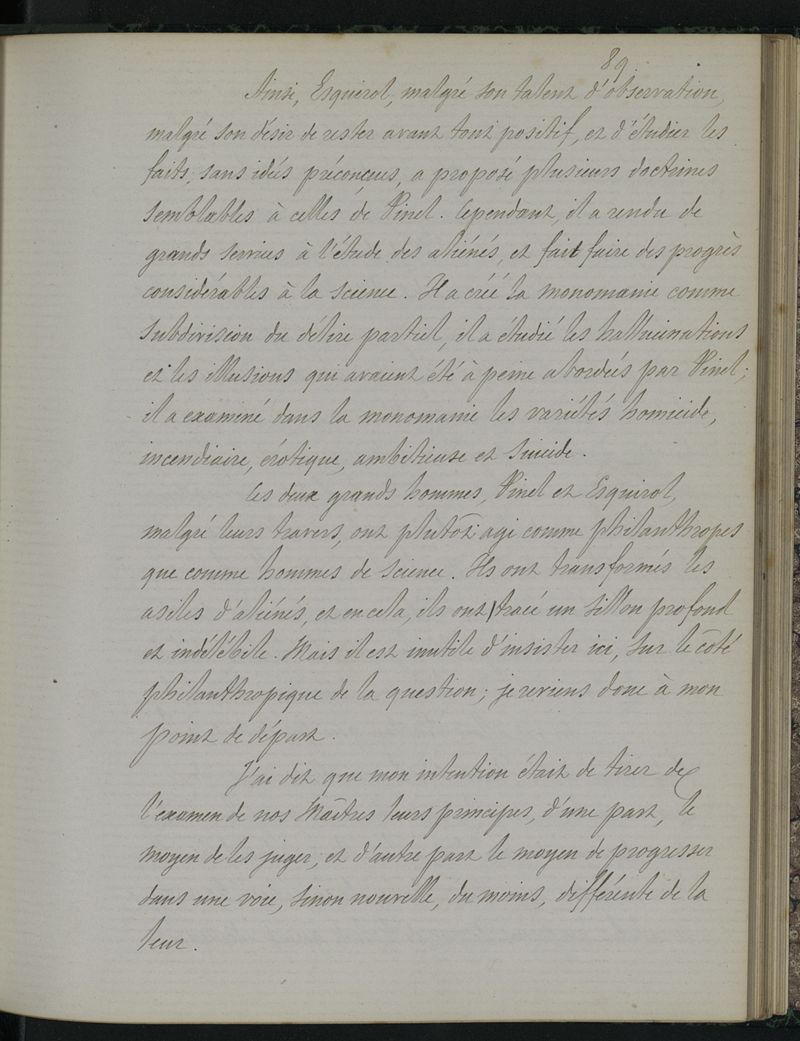 89
Ainsi, Esquirol, malgré son talent d'observation,
malgré son désir de rester avant tout positif, et d'étudier les
faits, sans idées préconçues, a proposé plusieurs doctrines
semblables à celles de Pinel. Cependant, il a rendu de
grands services à l'étude des aliénés, et fait faire des progrès
considérables à la science. Il a créé la monomanie comme
subdivision du délire partiel, il a étudié les hallucinations
et les illusions qui avaient été à peine abordées par Pinel;
il a examiné dans la monomanie les variétés homicide,
incendiaire, érotique, ambitieuse et suicide.
Ces deux grands hommes, Pinel et Esquirol,
malgré leurs travers, ont plutôt agi comme philanthropes
que comme hommes de science. Ils ont transformés les
asiles d'aliénés, et en cela, ils ont tracé un sillon profond
et indélébile. Mais il est inutile d'insister ici, sur le côté
philanthropique de la question; je reviens donc à mon
point de départ.
J'ai dit que mon intention était de tirer de
l'examen de nos Maîtres leurs principes, d'une part, le
moyen de les juger, et d'autre part le moyen de progresser
dans une voie, sinon nouvelle, du moins, différente de la
leur.